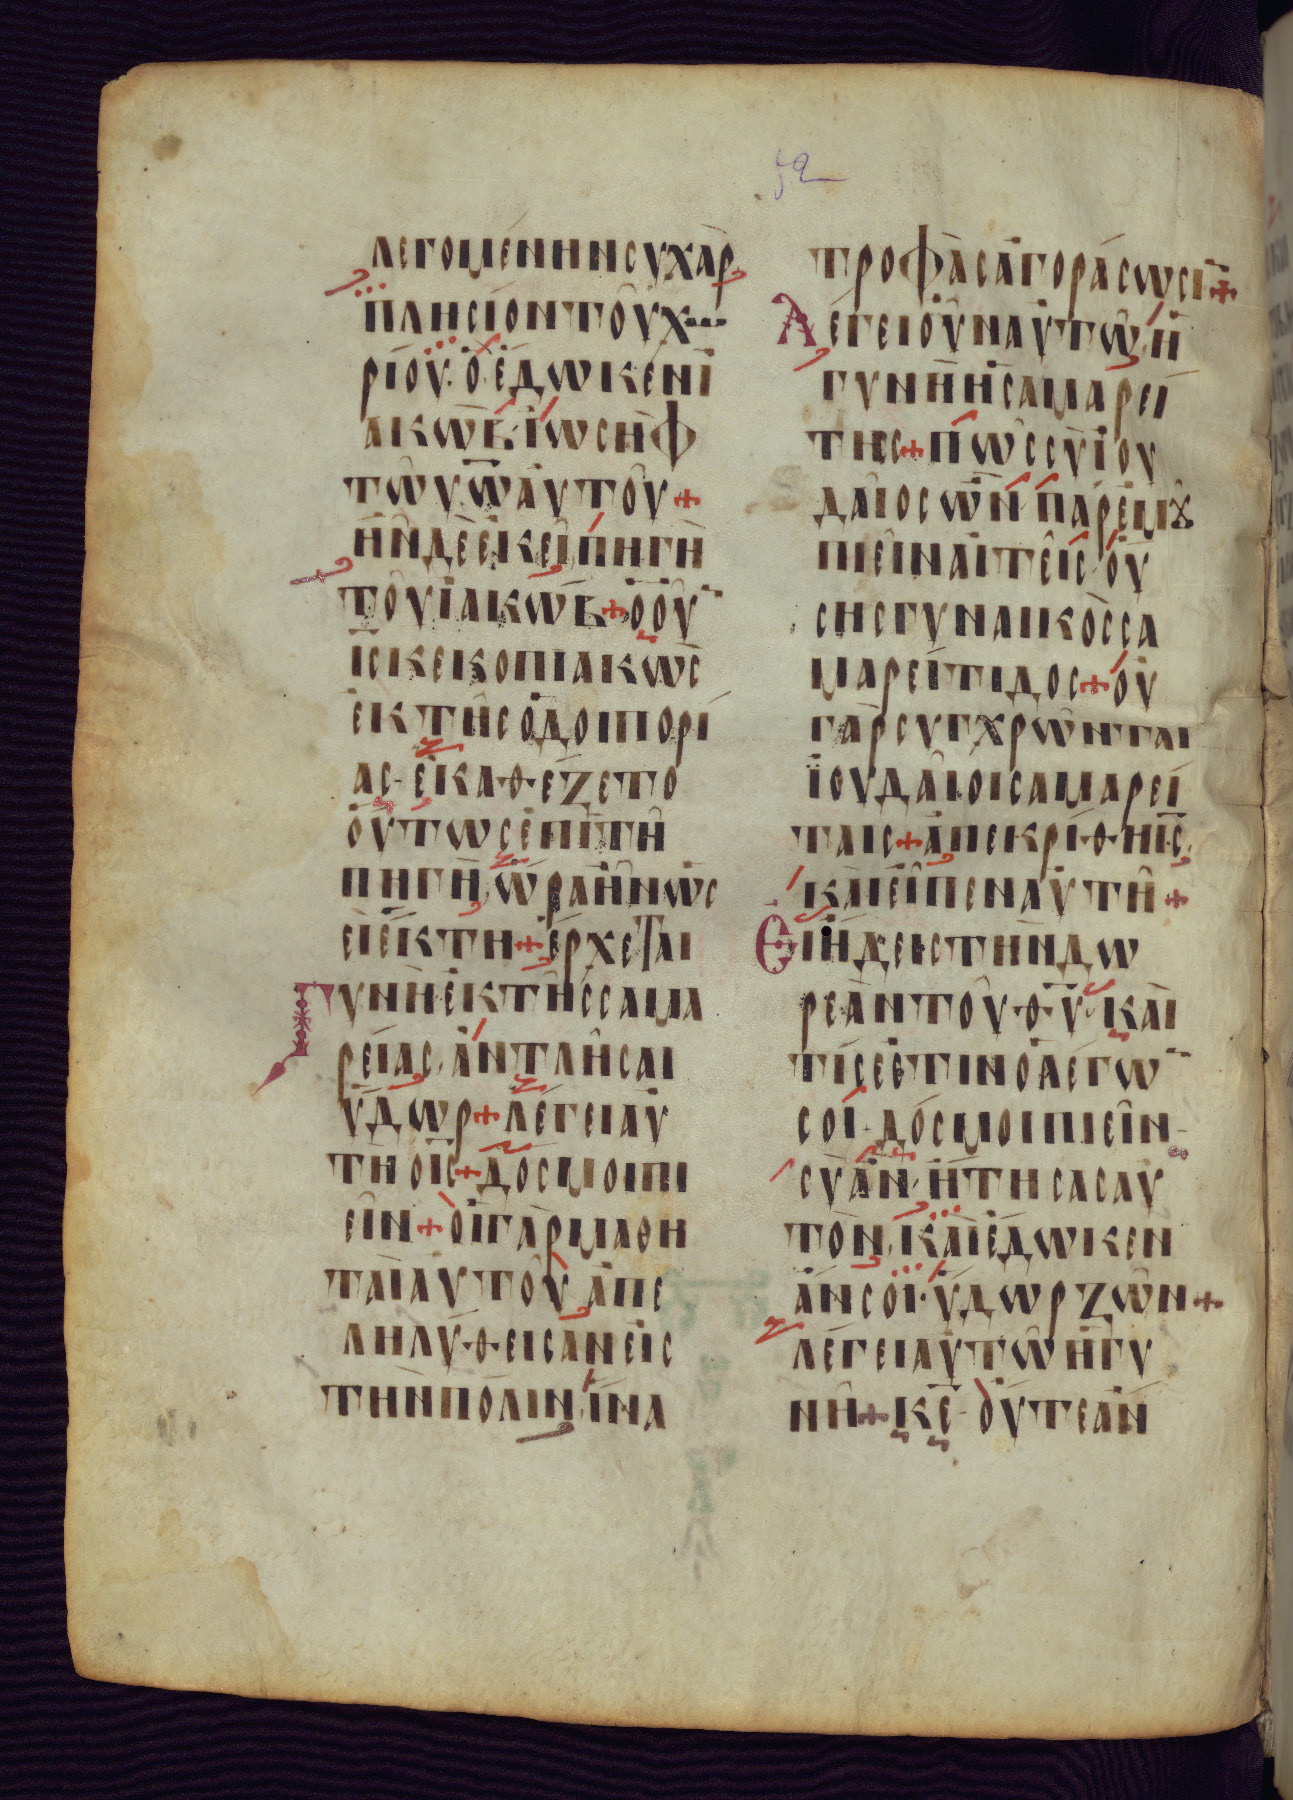 52
λεγομένην συχὰρ
πλησίον τοῦ χω
ρίου· ὃ ἔδωκεν ἰ
ακὼβ· ἰωσὴφ
τῶ υω αὐτοῦ +
ἦν δὲ ἐκεῖ πηγὴ
τοῦ ἰακώβ + ὁ οὖ
ις κεκοπιακὼς
ἐκ τῆς ὁδοιπορί
ας· ἐκαθέζετο
οὕτως ἐπὶ τῆ
πηγῆ, ὥρα ἦν ὡσ
εὶ ἕκτη + ἔρχεται
γυνὴ ἐκ τῆς σαμα
ρείας, ἀντλῆσαι
ὕδωρ + λέγει αὐ
τῆ ὁ ις + δός μοι πι
εῖν + οἱ γὰρ μαθη
ταὶ αὐτοῦ ἀπε
ληλύθεισαν εἰς
τὴν πόλιν, ἵνα
τροφὰς ἀγοράσωσι +
λέγει οὖν αὐτῶ, ἡ
γυνὴ ἡ σαμαρεί
της + πῶς σὺ ἰου
δαῖος ὢν παρ' ἐμοῦ
πιεῖν αἰτεῖς· οὔ
σης γυναικὸς σα
μαρείτιδος + οὐ
γὰρ συγχρῶνται
ἰουδαῖοι σαμαρεί
ταις + ἀπεκρίθη ις
καὶ εἶπεν αὐτῆ +
εἰ ἤδεις τὴν δω
ρεὰν τοῦ θυ· καὶ
τίς ἐστιν ὁ λέγω
σοι· δός μοι πιεῖν
σὺ ἂν ἤτησας αὐ
τὸν, καὶ ἔδωκεν
ἄν σοι· ὕδωρ ζῶν +
λέγει αὐτῶ ἡ γυ
νὴ + κε· οὔτε ἄν